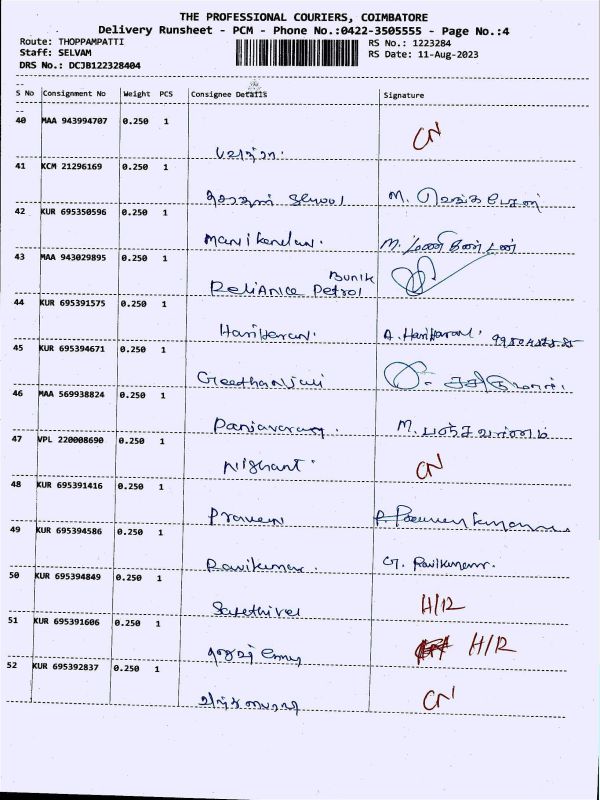 THE PROFESSIONAL COURIERS, COIMBATORE
Delivery Runsheet - PCM - Phone No.:0422-3505555 - Page No.:4
Route: THOPPAMPATTI RS No.: 1223284
Staff: SELVAM RS Date: 11-Aug-2023
DRS No.: DCJB122328404
S No Consignment No Weight PCS Consignee Details Signature
40 MAA 943994707 0.250 1 CN
41 KCM 21296169 0.250 1
School M.
42 KUR 695350596 0.250 1
Manikandan. M. மணிகண்டன்
43 MAA 943029895 0.250 1
Bunk
Reliance Petrol
44 KUR 695391575 0.250 1
Hariharan. A. Hariharan.
45 KUR 695394671 0.250 1
Geethanjali
46 MAA 569938824 0.250 1
Panjavaranam. M. பஞ்சவர்ணம்
47 VPL 220008690 0.250 1
Nishant. CN
48 KUR 695391416 0.250 1
Praveen
49 KUR 695394586 0.250 1
Ravikumar. G. Ravikumar.
50 KUR 695394849 0.250 1
Sakthivel H/12
51 KUR 695391606 0.250 1
H/12
52 KUR 695392837 0.250 1
CN